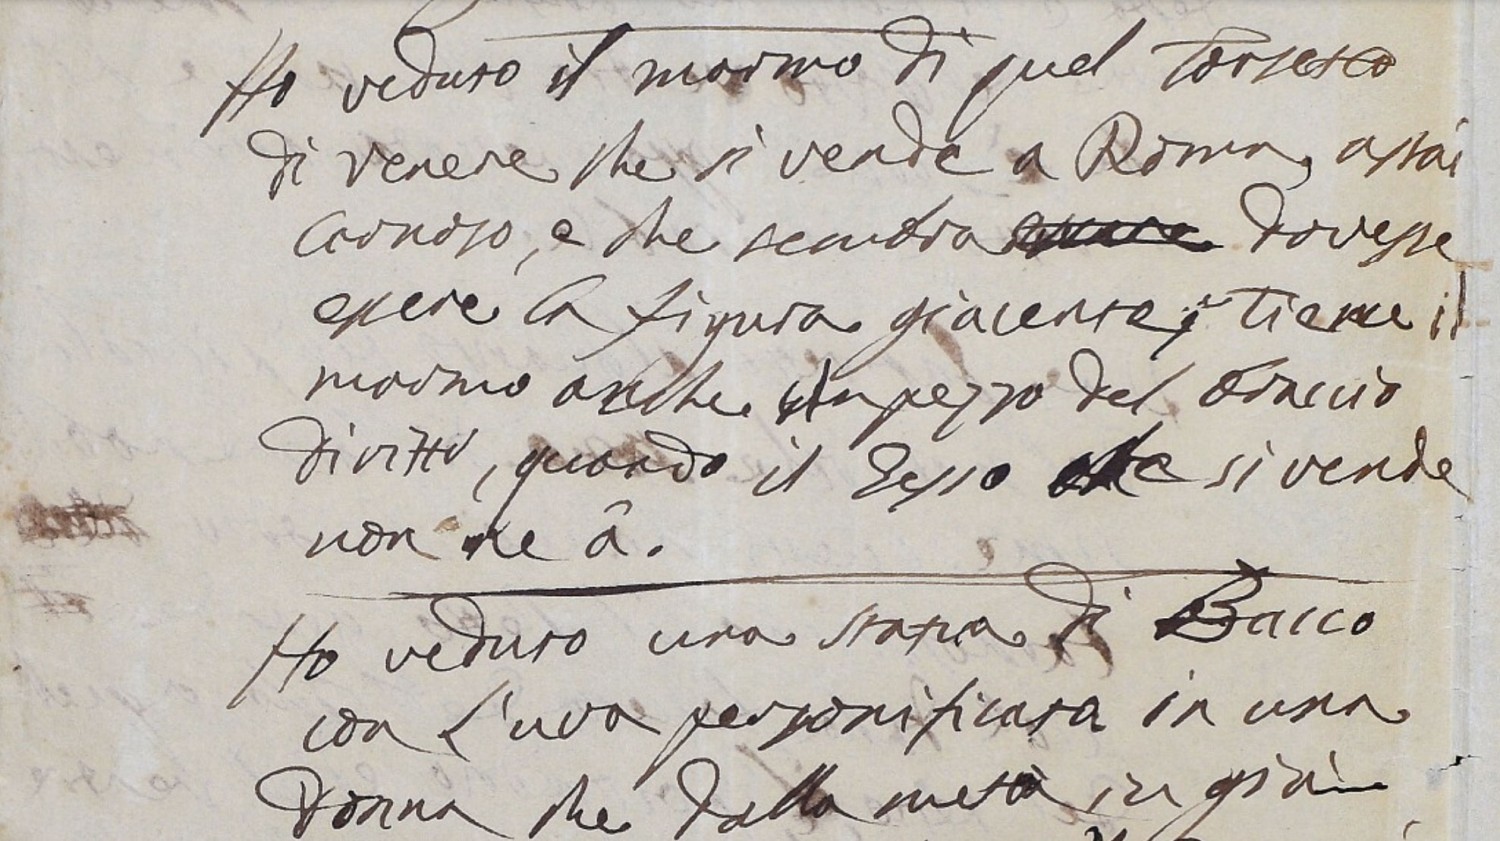 Ho veduto il marmo di quel Torsetto
di venere che si vende a Roma, assai
carnoso, e che sembra dovesse
essere la figura giacente, tiene il
marmo anche un pezzo del braccio
diritto, quando il Gesso che si vende
non ne â.
Ho veduto una statua di Bacco
con l'uva personificata in una
Donna che dalla metà in giù